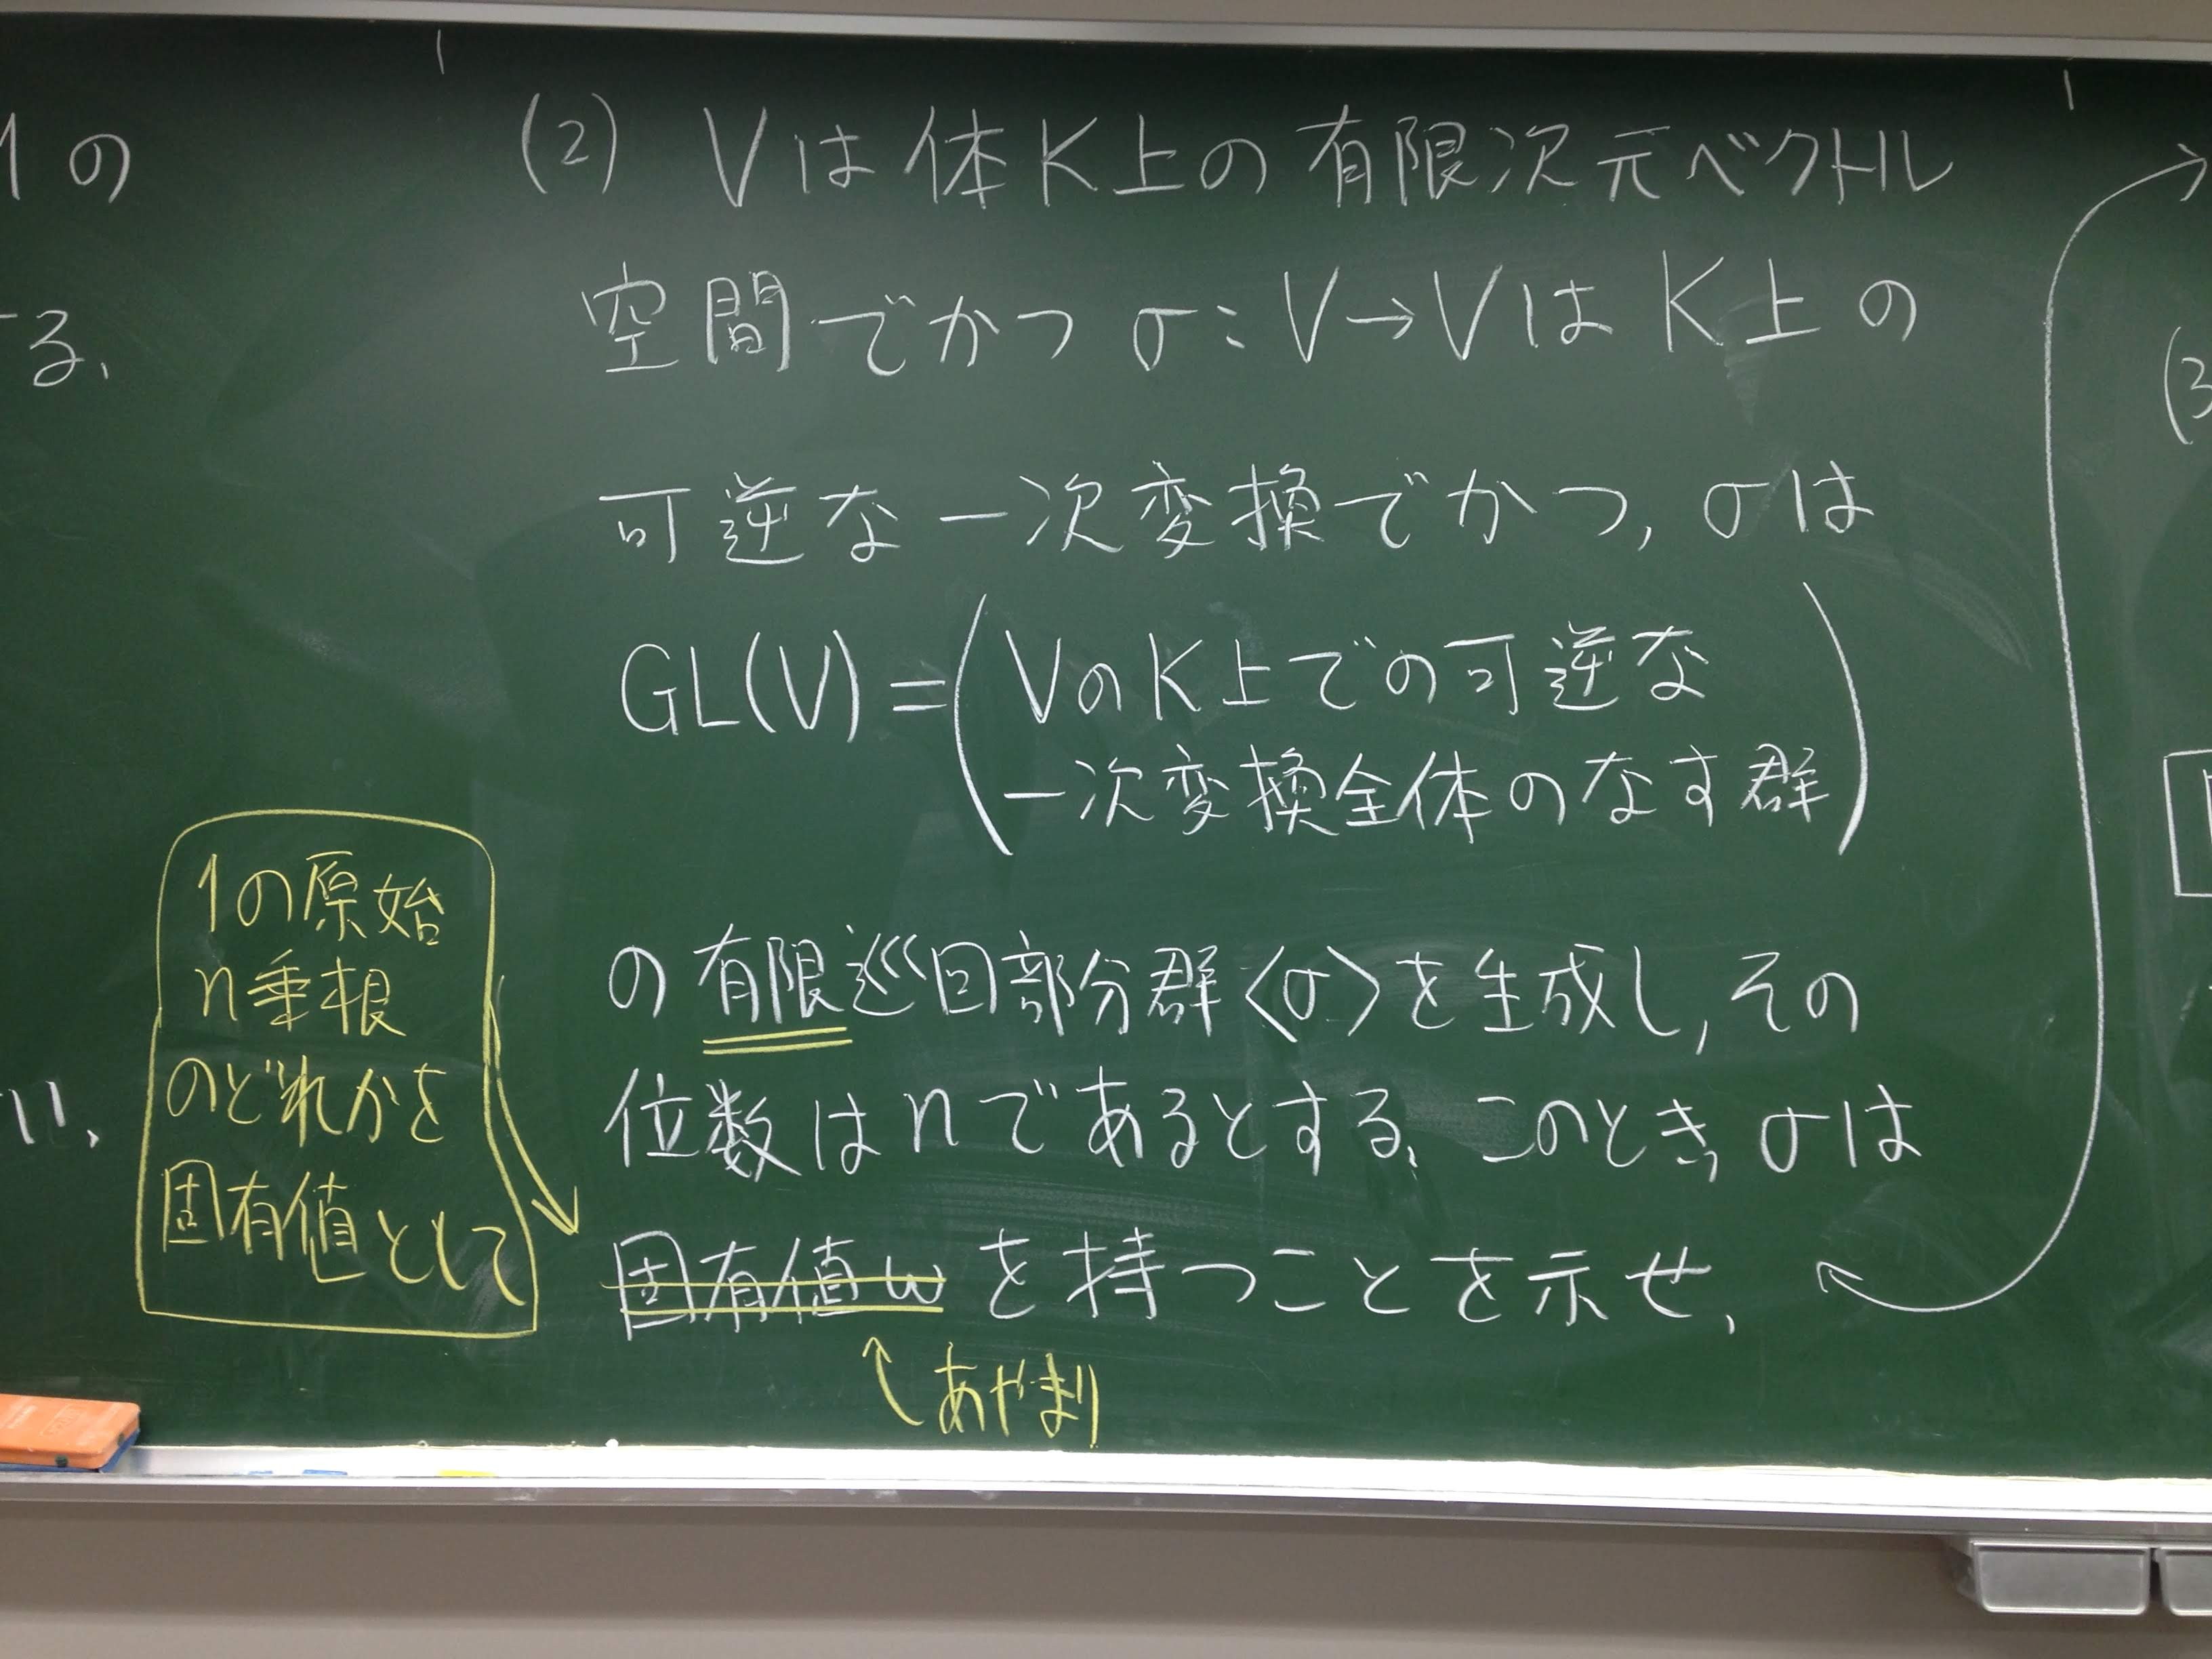 1の
(2) Vは体K上の有限次元ベクトル
空間でかつσ:V→VはK上の
(3
る、
可逆な一次変換でかつ, σは
GL(V)=(Vの K上での可逆な
一次変換全体のなす群)
の有限巡回部分群<σ>を生成し, その
位数はnであるとする、このとき, σは
い、
固有値ωを持つことを示せ、
あやまり
1の原始
n乗根
のどれかを
固有値として